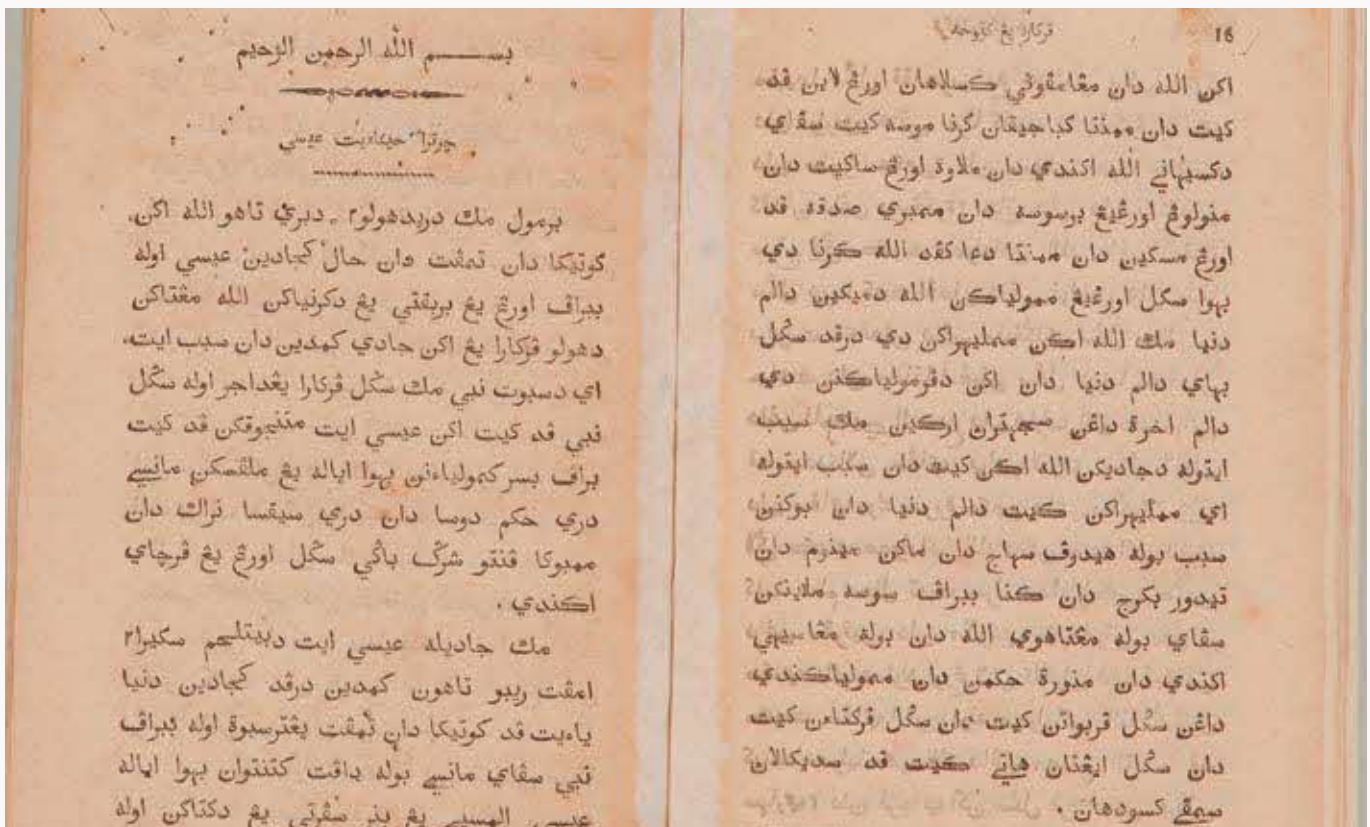 16
فركارا يڠ كڤرتام
اكن الله دان مڠامڤوني كسلاهان اورڠ لاين ڤد
كيت دان ممنتا كباجيقان كرنا موسه كيت سڤاي
دكسيهاني الله اكندي دان ملاوة اورڠ ساكيت دان
منولوڠ اورڠيڠ برسوسه دان ممبري صدقه ڤد
اورڠ مسكين دان ممنتا دعا كڤد الله كرنا دي
بهوا سكل اورڠيڠ ممولياكن الله دميكين دالم
دنيا مك الله اكن مملیهراكن دي درڤد سڬل
بهاي دالم دنيا دان اكن دڤرمولياكنن دي
دالم اخرة داڠن سجهتران ارڬين مك سبب
ايتوله دجاديكن الله اكن كيت دان سبب ايتوله
اي مملیهراكن كيت دالم دنيا دان بوكنن
سبب بوله هيدوڤ سهاج دان ماكن مينوم دان
تيدور بكرج دان كنا ببراڤ سوسه ملاينكن
سڤاي بوله مڠتاهوي الله دان بوله مڠاسيهي
اكندي دان منورة حكمن دان ممولياكندي
داڠن سڬل ڤربواتن كيت دان سڬل ڤركتاءن كيت
دان سڬل ايڠتان هاتي كيت ڤد سديكالان
سمڤي كسودهان .
بســـــم الله الرحمن الرحيم
چرترا حكايت عيسى
برمول مك دريدهولو٢ دبري تاهو الله اكن
كوتيكا دان تمڤت دان حال كجادين عيسى اوله
ببراڤ اورڠ يڠ بربقتي يڠ دكرنياكن الله مڠتاكن
دهولو ڤركارا يڠ اكن جادي كمدين دان سبب ايت
اي دسبوت نبي مك سڬل ڤركارا يڠداجر اوله سڬل
نبي ڤد كيت اكن عيسى ايت مننجوقكن ڤد كيت
براڤ بسر كمولياءنن بهوا اياله يڠ ملڤسكن مانسي
دري حكم دوسا دان دري سيقسا نراك دان
ممبوكا ڤنتو شرڬ باڬي سڬل اورڠ يڠ ڤرچاي
اكندي .
مك جاديله عيسى ايت دبيتلحم سكيرا٢
امڤت ريبو تاهون كمدين درڤد كجادين دنيا
ياءيت ڤد كوتيكا دان تمڤت يڠترسبوة اوله ببراڤ
نبي سڤاي مانسي بوله داڤت كتنتوان بهوا اياله
عيسى المسيح يڠ بنر سڤرتي يڠ دكتاكن اوله